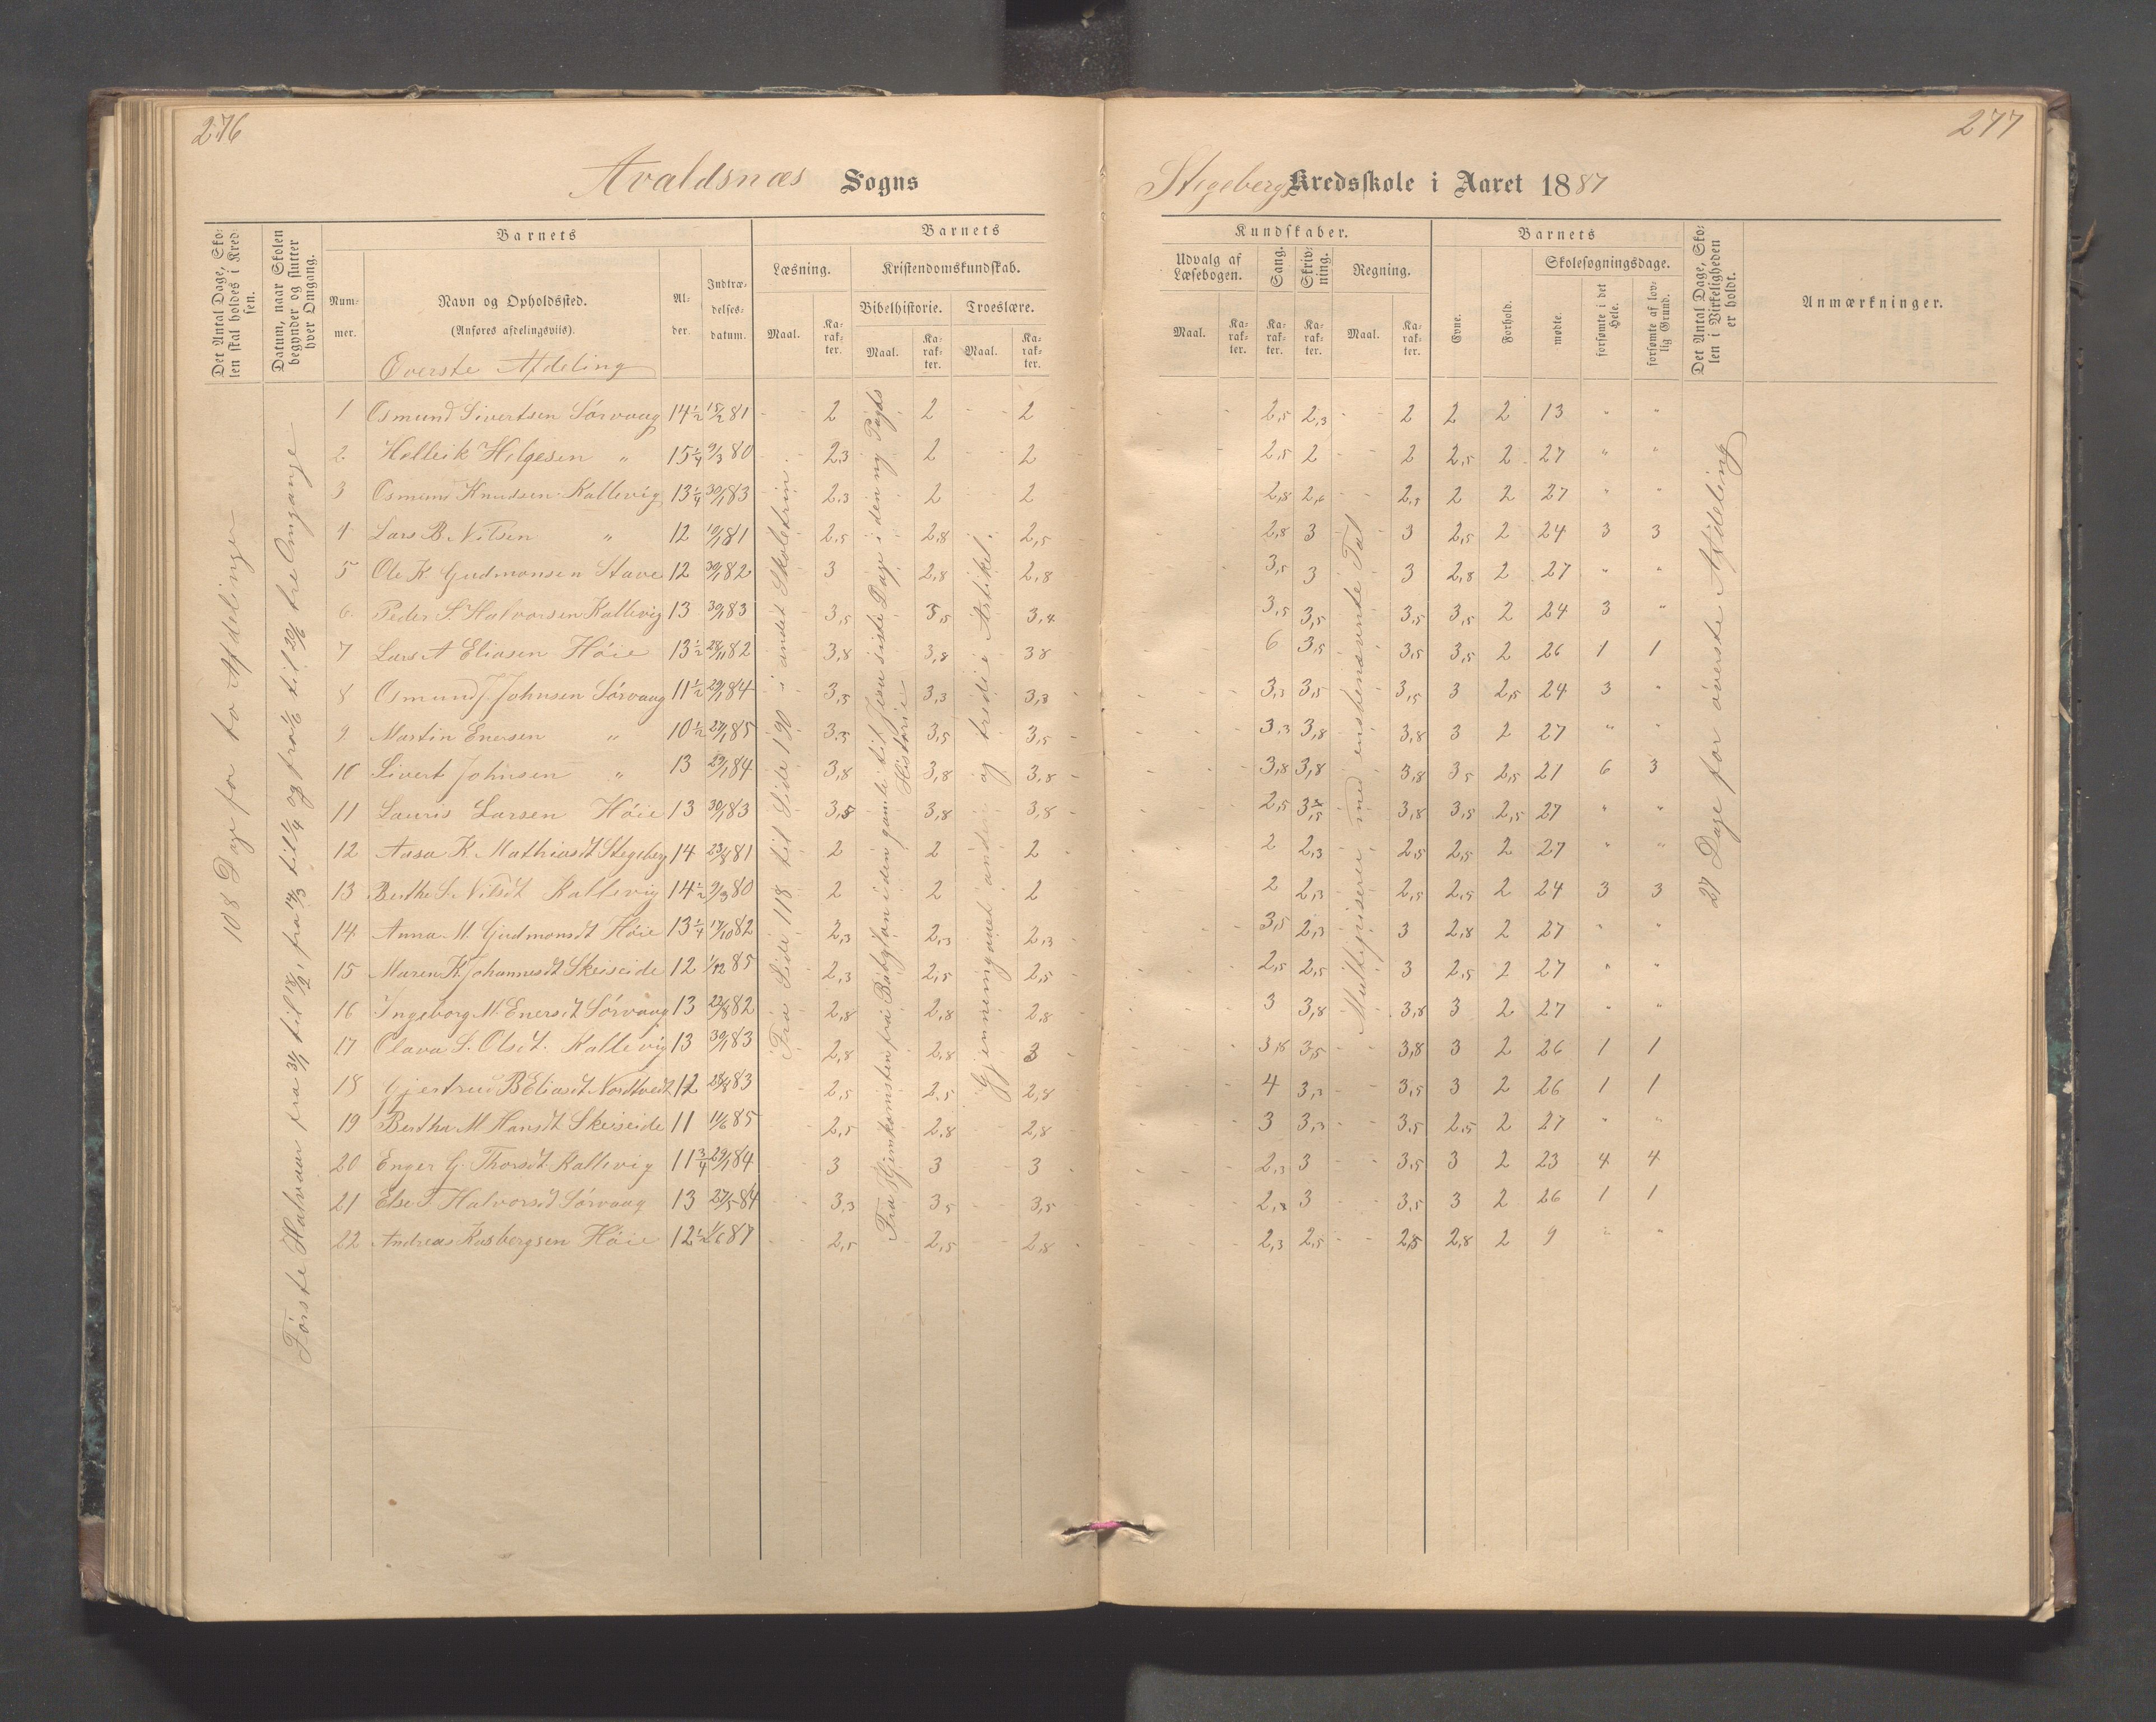 276
277
Avaldsnæs Sogns
Stegebergs Kredsskole i Aaret 1887
Det Antal Dage, Sko-
len skal holdes i Kred-
sen.
Datum, naar Skolen
begynder og slutter
hver Omgang.
Barnets
Num-
mer.
Navn og Opholdssted.
(Anføres afdelingsviis).
Øverste Afdeling
Al-
der.
Indtræ-
delses-
datum.
Barnets
Læsning.
Maal.
Ka-
rak-
ter.
Kristendomskundskab.
Bibelhistorie.
Maal.
Ka-
rak-
ter.
Troeslære.
Maal.
Ka-
rak-
ter.
Kundskaber.
Udvalg af
Læsebogen.
Maal.
Ka-
rak-
ter.
Sang.
Ka-
rak-
ter.
Skriv-
ning.
Ka-
rak-
ter.
Regning.
Maal.
Ka-
rak-
ter.
Barnets
Evne.
Forhold.
Skolesøgningsdage.
mødte.
forsømte i det
Hele.
forsømte af lov-
lig Grund.
Det Antal Dage, Sko-
len i Virkeligheden
er holdt.
Anmærkninger.
108 Dage for to Afdelinger
Første Halvaar fra 31/1 til 18/2, fra 14/3 til 1/4 og fra 1/6 til 20/6 tre Omgange
Fra Side 118 til Side 190 i andet Skoletrin.
Fra Hjemkomsten fra Babylon i den gamle til Jesu sidste Dage i den ny Pagts
Historie
Gjennemgaaet anden og tredie Artikel.
Multiplisere med enskbenævnte Tal
27 Dage for øverste Afdeling
1 Osmund Sivertsen Sørvaag 14½ 15/2 81 2 2 2 2,5 2,3 2 2 2 13 " "
2 Helleik Helgesen " 15¼ 9/3 80 2,3 2 2 2,5 2 2 2,5 2 27 " "
3 Osmund Knudsen Kallevig 13¼ 30/1 83 2,3 2 2 2,8 2,6 2,3 2 2 27 " "
4 Lars B. Nilsen " 12 10/1 81 2,5 2,8 2,5 2,8 3 3 2,5 2 24 3 3
5 Ole K. Gudmonsen Stave 12 30/1 82 3 2,8 2,8 3,5 3 3 2,8 2 27 " "
6 Peder S. Halvorsen Kallevig 13 30/1 83 3,5 3,5 3,4 3,5 3,5 3,5 3,5 2 24 3 "
7 Lars A Eliasen Høie 13½ 28/11 82 3,8 3,8 3,8 6 3,5 3,5 3,5 2 26 1 1
8 Osmund J. Johnsen Sørvaag 11½ 29/1 84 3,5 3,3 3,3 3,3 3,5 3,5 3 2,5 24 3 "
9 Martin Enersen " 10½ 27/1 85 3,5 3,5 3,5 3,3 3,8 3,8 3 2 27 " "
10 Sivert Johnsen " 13 29/1 84 3,8 3,8 3,8 3,8 3,8 3,8 3,5 2,5 21 6 3
11 Lauris Larsen Høie 13 30/1 83 3,8 3,8 3,8 2,5 3,5 3,8 3,5 2,5 27 " "
12 Aasa K. Mathiasdt Stegeberg 14 23/8 81 2 2 2 2 2,3 2,5 2,5 2 27 " "
13 Berthe S. Nilsdt Kallevig 14½ 9/3 80 2 2 2 2 2,3 2,5 2,5 2 24 3 3
14 Anna M. Gudmonsdt Høie 13¼ 17/10 82 2,3 2,3 2,3 3,5 2,3 3 2,8 2 27 " "
15 Maren K. Johannesdt Skeiseide 12 1/12 85 2,3 2,5 2,5 2,5 2,5 3 2,5 2 27 " "
16 Ingeborg M. Enersdt Sørvaag 13 22/8 82 2,8 2,8 2,8 3 3,8 3,8 3 2 27 " "
17 Olava S. Olsdt. Kallevig 13 30/1 83 2,8 2,8 3 3,8 3,5 3,8 3 2 26 1 1
18 Gjertrud B Eliasdt Nordtveit 12 28/8 83 2,5 2,5 2,8 4 3,3 3,5 3 2 26 1 1
19 Bertha M Hansdt Skeiseide 11 11/6 85 2,5 2,8 2,8 3 3,3 3,5 2,5 2 27 " "
20 Enger G. Thorsdt. Kallevig 11¾ 29/1 84 3 3 3 2,3 3 3,5 3 2 23 4 4
21 Else T. Halvorsdt Sørvaag 13 27/5 84 3,3 3,5 3,5 2,8 3 3,5 3 2 26 1 1
22 Andreas Rasbergsen Høie 12½ 1/6 87 2,5 2,5 2,8 2,3 2,5 2,5 2,8 2 9 " "